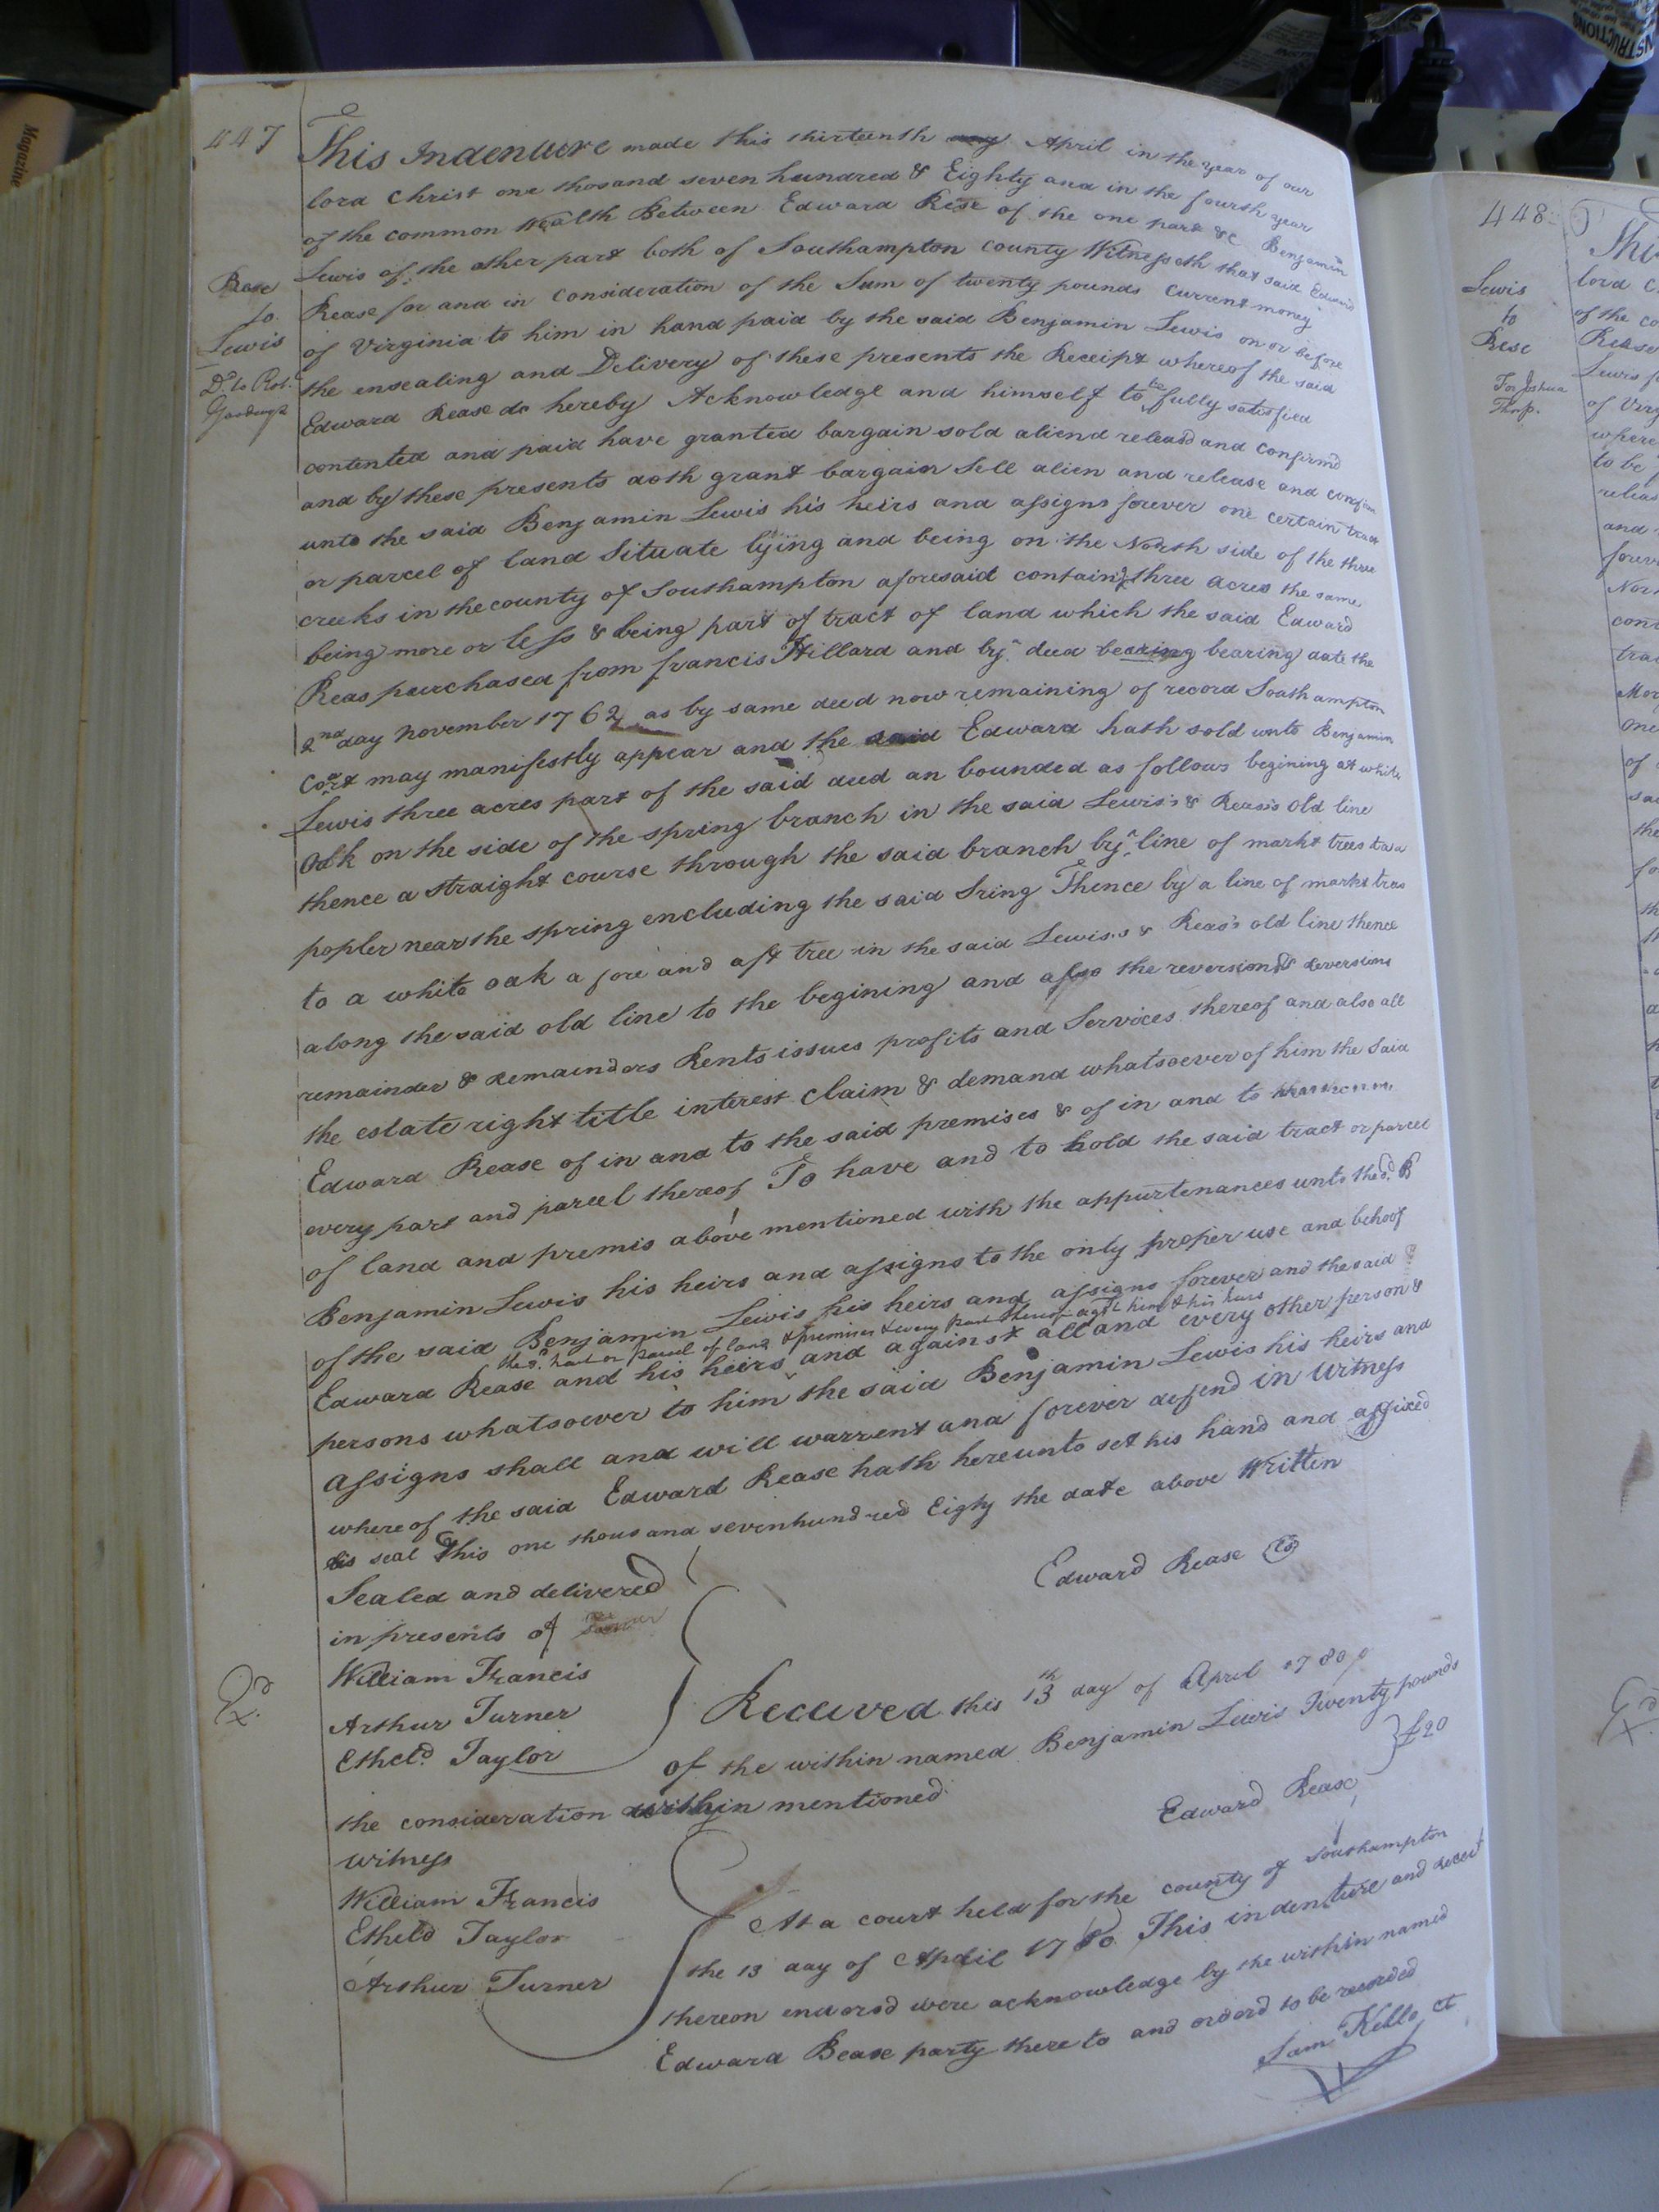 447
This Indenture made this thirteenth April in the year of our
lord Christ one thosand seven hundred & Eighty and in the fourth year
of the common Wealth Between Edward Rese of the one part &c Benjamin
Lewis of the other part both of Southampton county Witnesseth that said Edward
Rease for and in Consideration of the Sum of twenty pounds Current money
of Virginia to him in hand paid by the said Benjamin Lewis on or before
the ensealing and Delivery of these presents the Receipt whereof the said
Edward Rease do hereby Acknowledge and himself to be fully satisfied
contented and paid have granted bargain sold aliend releasd and confirmd
and by these presents doth grant bargain Sell alien and release and confirm
unto the said Benjamin Lewis his heirs and assigns forever one certain tract
or parcel of land Situate lying and being on the North side of the three
creeks in the county of Southampton aforesaid containg three acres the same
being more or less & being part of tract of land which the said Edward
Reas purchased from francis Hillard and by deed bearing bearing date the
2nd day November 1762 as by same deed now remaining of record Southampton
Court may manifestly appear and the said Edward hath sold unto Benjamin
Lewis three acres part of the said deed an bounded as follows begining at white
Oak on the side of the spring branch in the said Lewis's & Reas's Old line
thence a straight course through the said branch by line of markt trees to a
popler near the spring encluding the said Sring Thence by a line of markt trees
to a white oak a fore and aft tree in the said Lewis's & Reas's old line thence
along the said old line to the begining and also the reversion & reversions
remainder & remainders Rents issues profits and Services thereof and also all
the estate right title interest Claim & demand whatsoever of him the Said
Edward Rease of in and to the said premises & of in and to
every part and parcel thereof To have and to hold the said tract or parcel
of land and premis above mentioned with the appurtenances unto the sd. B
Benjamin Lewis his heirs and assigns to the only proper use and behoof
of the said Benjamin Lewis his heirs and assigns forever and the said
the sd. tract or parcel of land & premises & every part thereof agst. him & his heirs
Edward Rease and his heirs and against all and every other person &
persons whatsoever to him the said Benjamin Lewis his heirs and
assigns shall and will warrent and forever defend in Witness
whereof the said Edward Rease hath hereunto set his hand and affixed
his seal This one thousand sevenhundred Eigty the date above Written
Sealed and delivered
in presents of
William Francis
Arthur Turner
Etheld. Taylor
Edward Rease LS
Received this 13th day of April 1780
of the within named Benjamin Lewis Twenty pounds
the consideration within mentioned
£20
Edward Rease
Witness
William Francis
Etheld Taylor
Arthur Turner
At a court held for the county of Southampton
the 13 day of April 1780 This indenture and receit
thereon endorsd were acknowledge by the within named
Edward Rease party there to and orderd to be recorded
Sam Kello Ct
Rese
to
Lewis
Dd. to Robt.
Exd.
448
Lewis
to
Rese
For Joshua
Thorp.
Thi
lord C
of the co
Rease
Lewis f
of Virg
where
to be
releas
and
forev
Nor
con
trac
Exd.
Magazine
INSTRUCTIONS